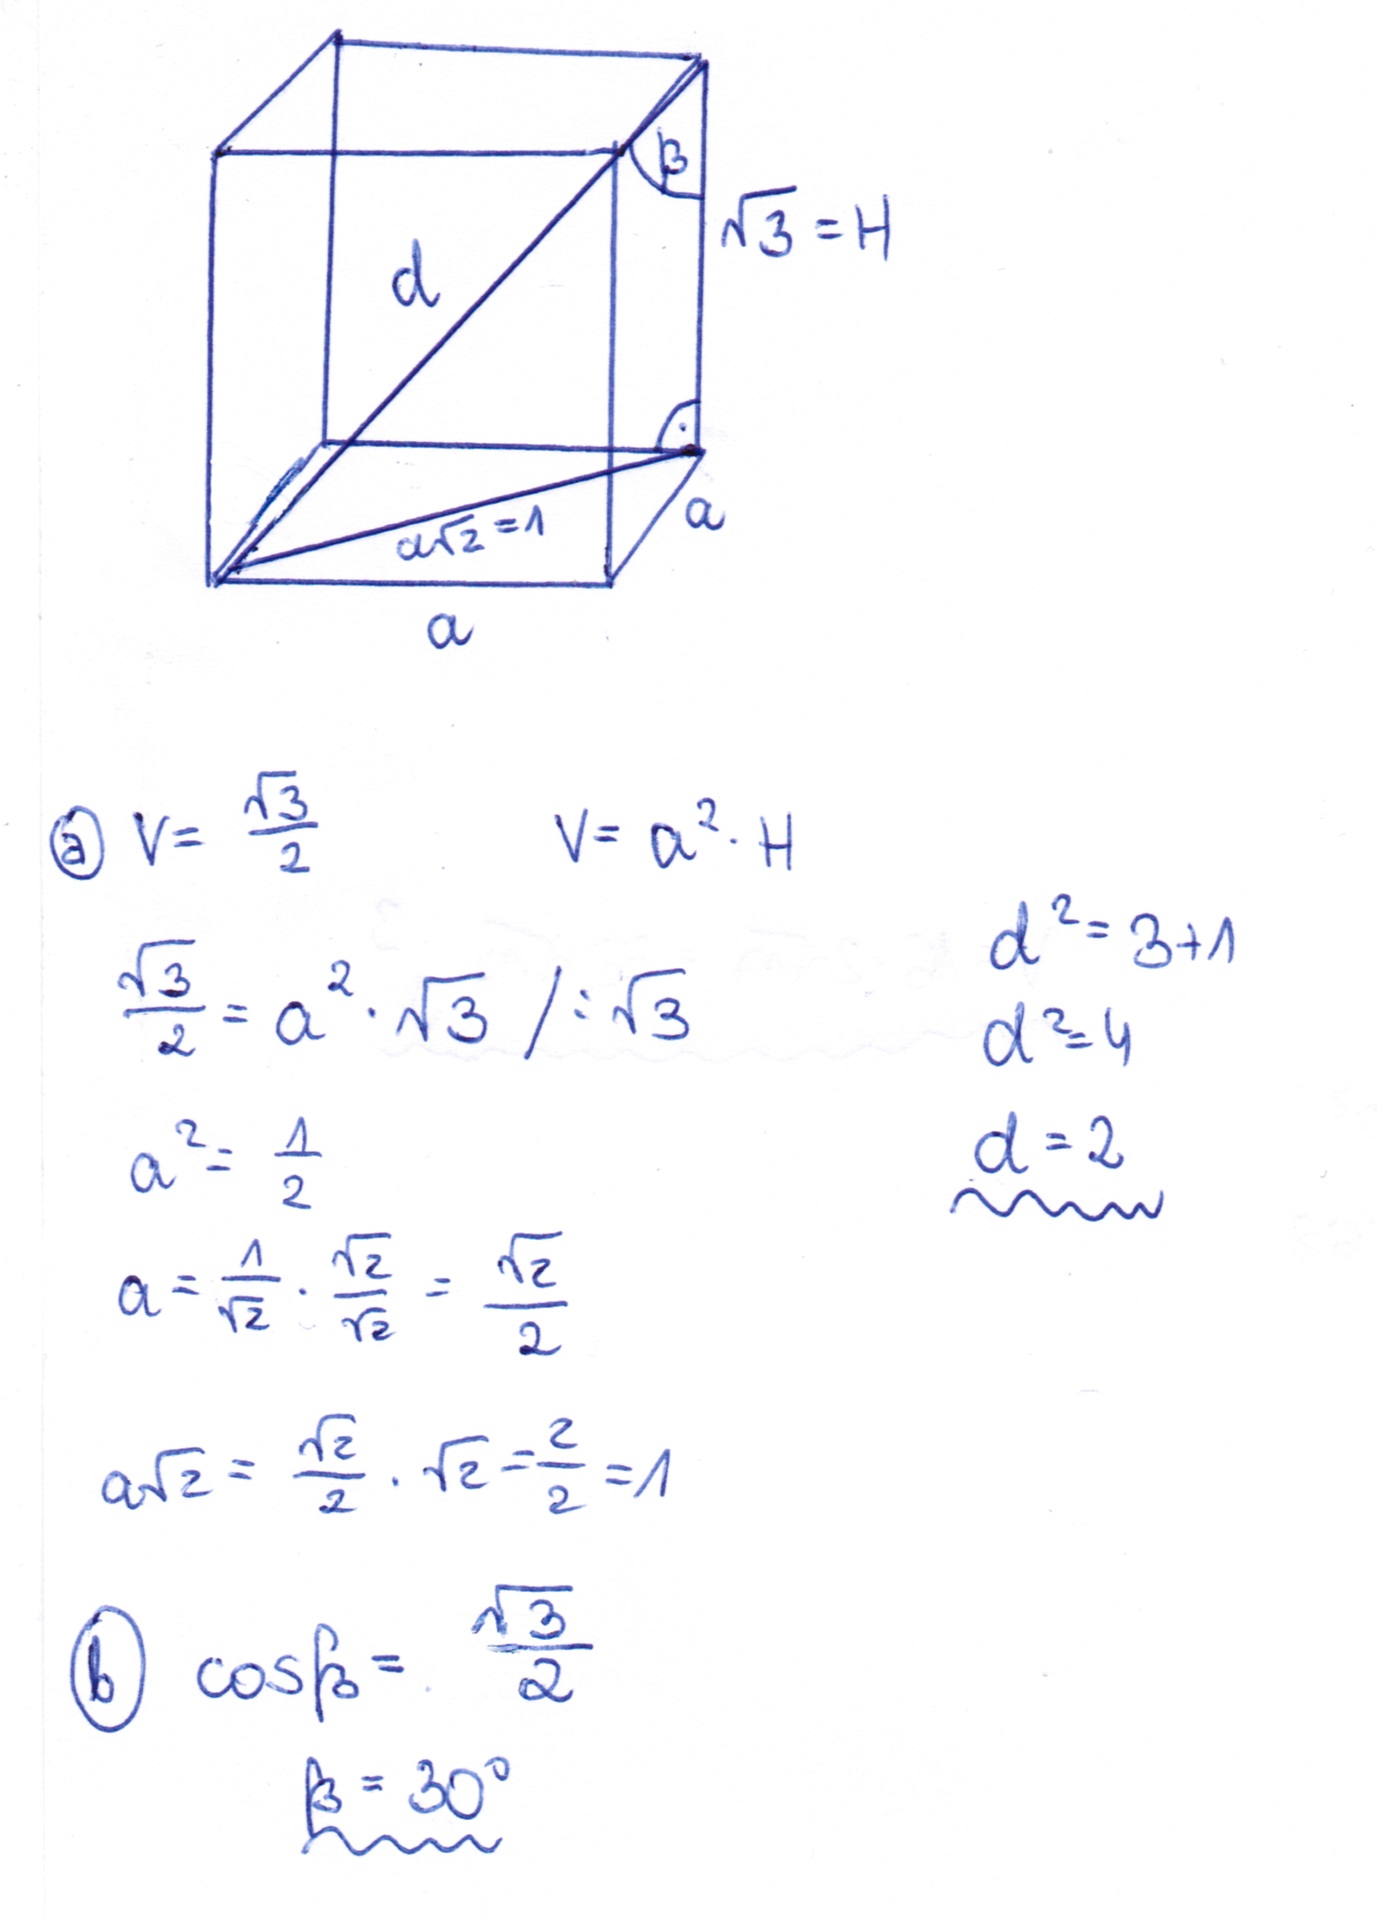 β
√3 = H
d
a√2 = 1
a
a
ⓐ V = √3/2    V = a² · H
√3/2 = a² · √3 / : √3
a² = 1/2
a = 1/√2 · √2/√2 = √2/2
a√2 = √2/2 · √2 = 2/2 = 1
d² = 3+1
d² = 4
d = 2
ⓑ cosβ = √3/2
β = 30°